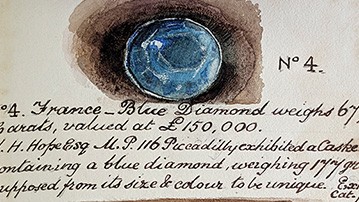 Nº 4.
Nº4. France – Blue Diamond weighs 67
Carats, valued at £150,000.
H. Hope Esq M. P. 116 Piccadilly exhibited a Caske
containing a blue diamond, weighing 177 gr
supposed from its size & colour to be unique.
Cat.